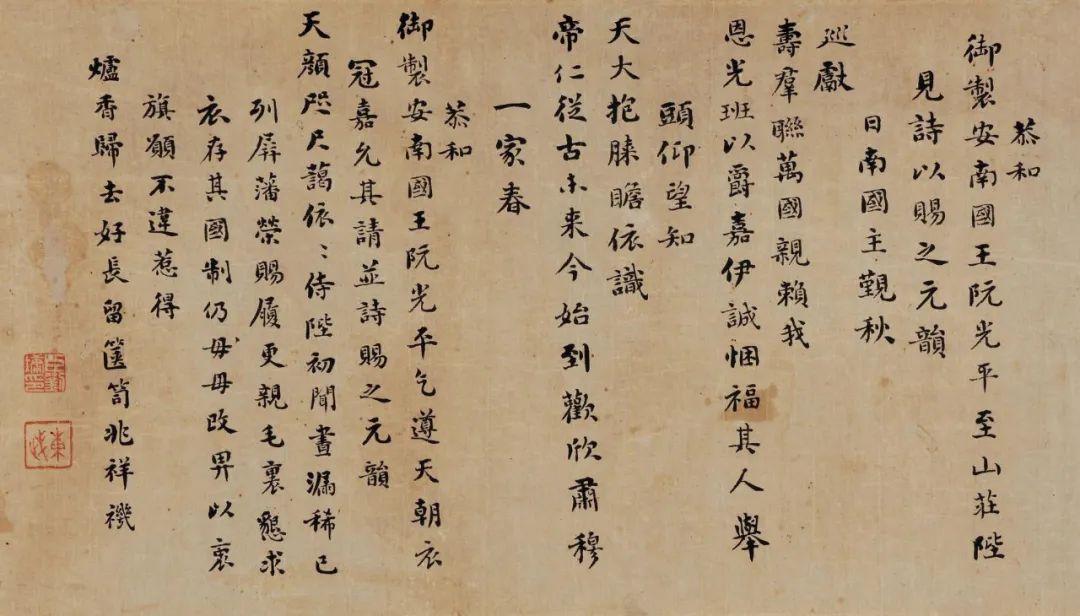 恭和
御製安南國王阮光平至山莊陛
見詩以賜之元韻
日南國主覲秋
巡獻
壽羣聯萬國親賴我
恩光班以爵嘉伊誠悃福其人舉
頭仰望知
天大抱膝瞻依識
帝仁從古未来今始到歡欣肅穆
一家春
恭和
御製安南國王阮光平乞遵天朝衣
冠嘉允其請並詩賜之元韻
天顔咫尺藹依〻侍陛初聞晝漏稀已
列屏藩榮賜履更親毛裏懇求
衣存其國制仍毋改畀以衷
旗願不違惹得
爐香歸去好長留篋笥兆祥禨